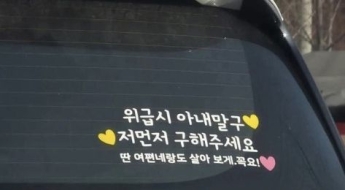 위급시 아내말구
저먼저 구해주세요
딴 여편네랑도 살아 보게.꼭요!